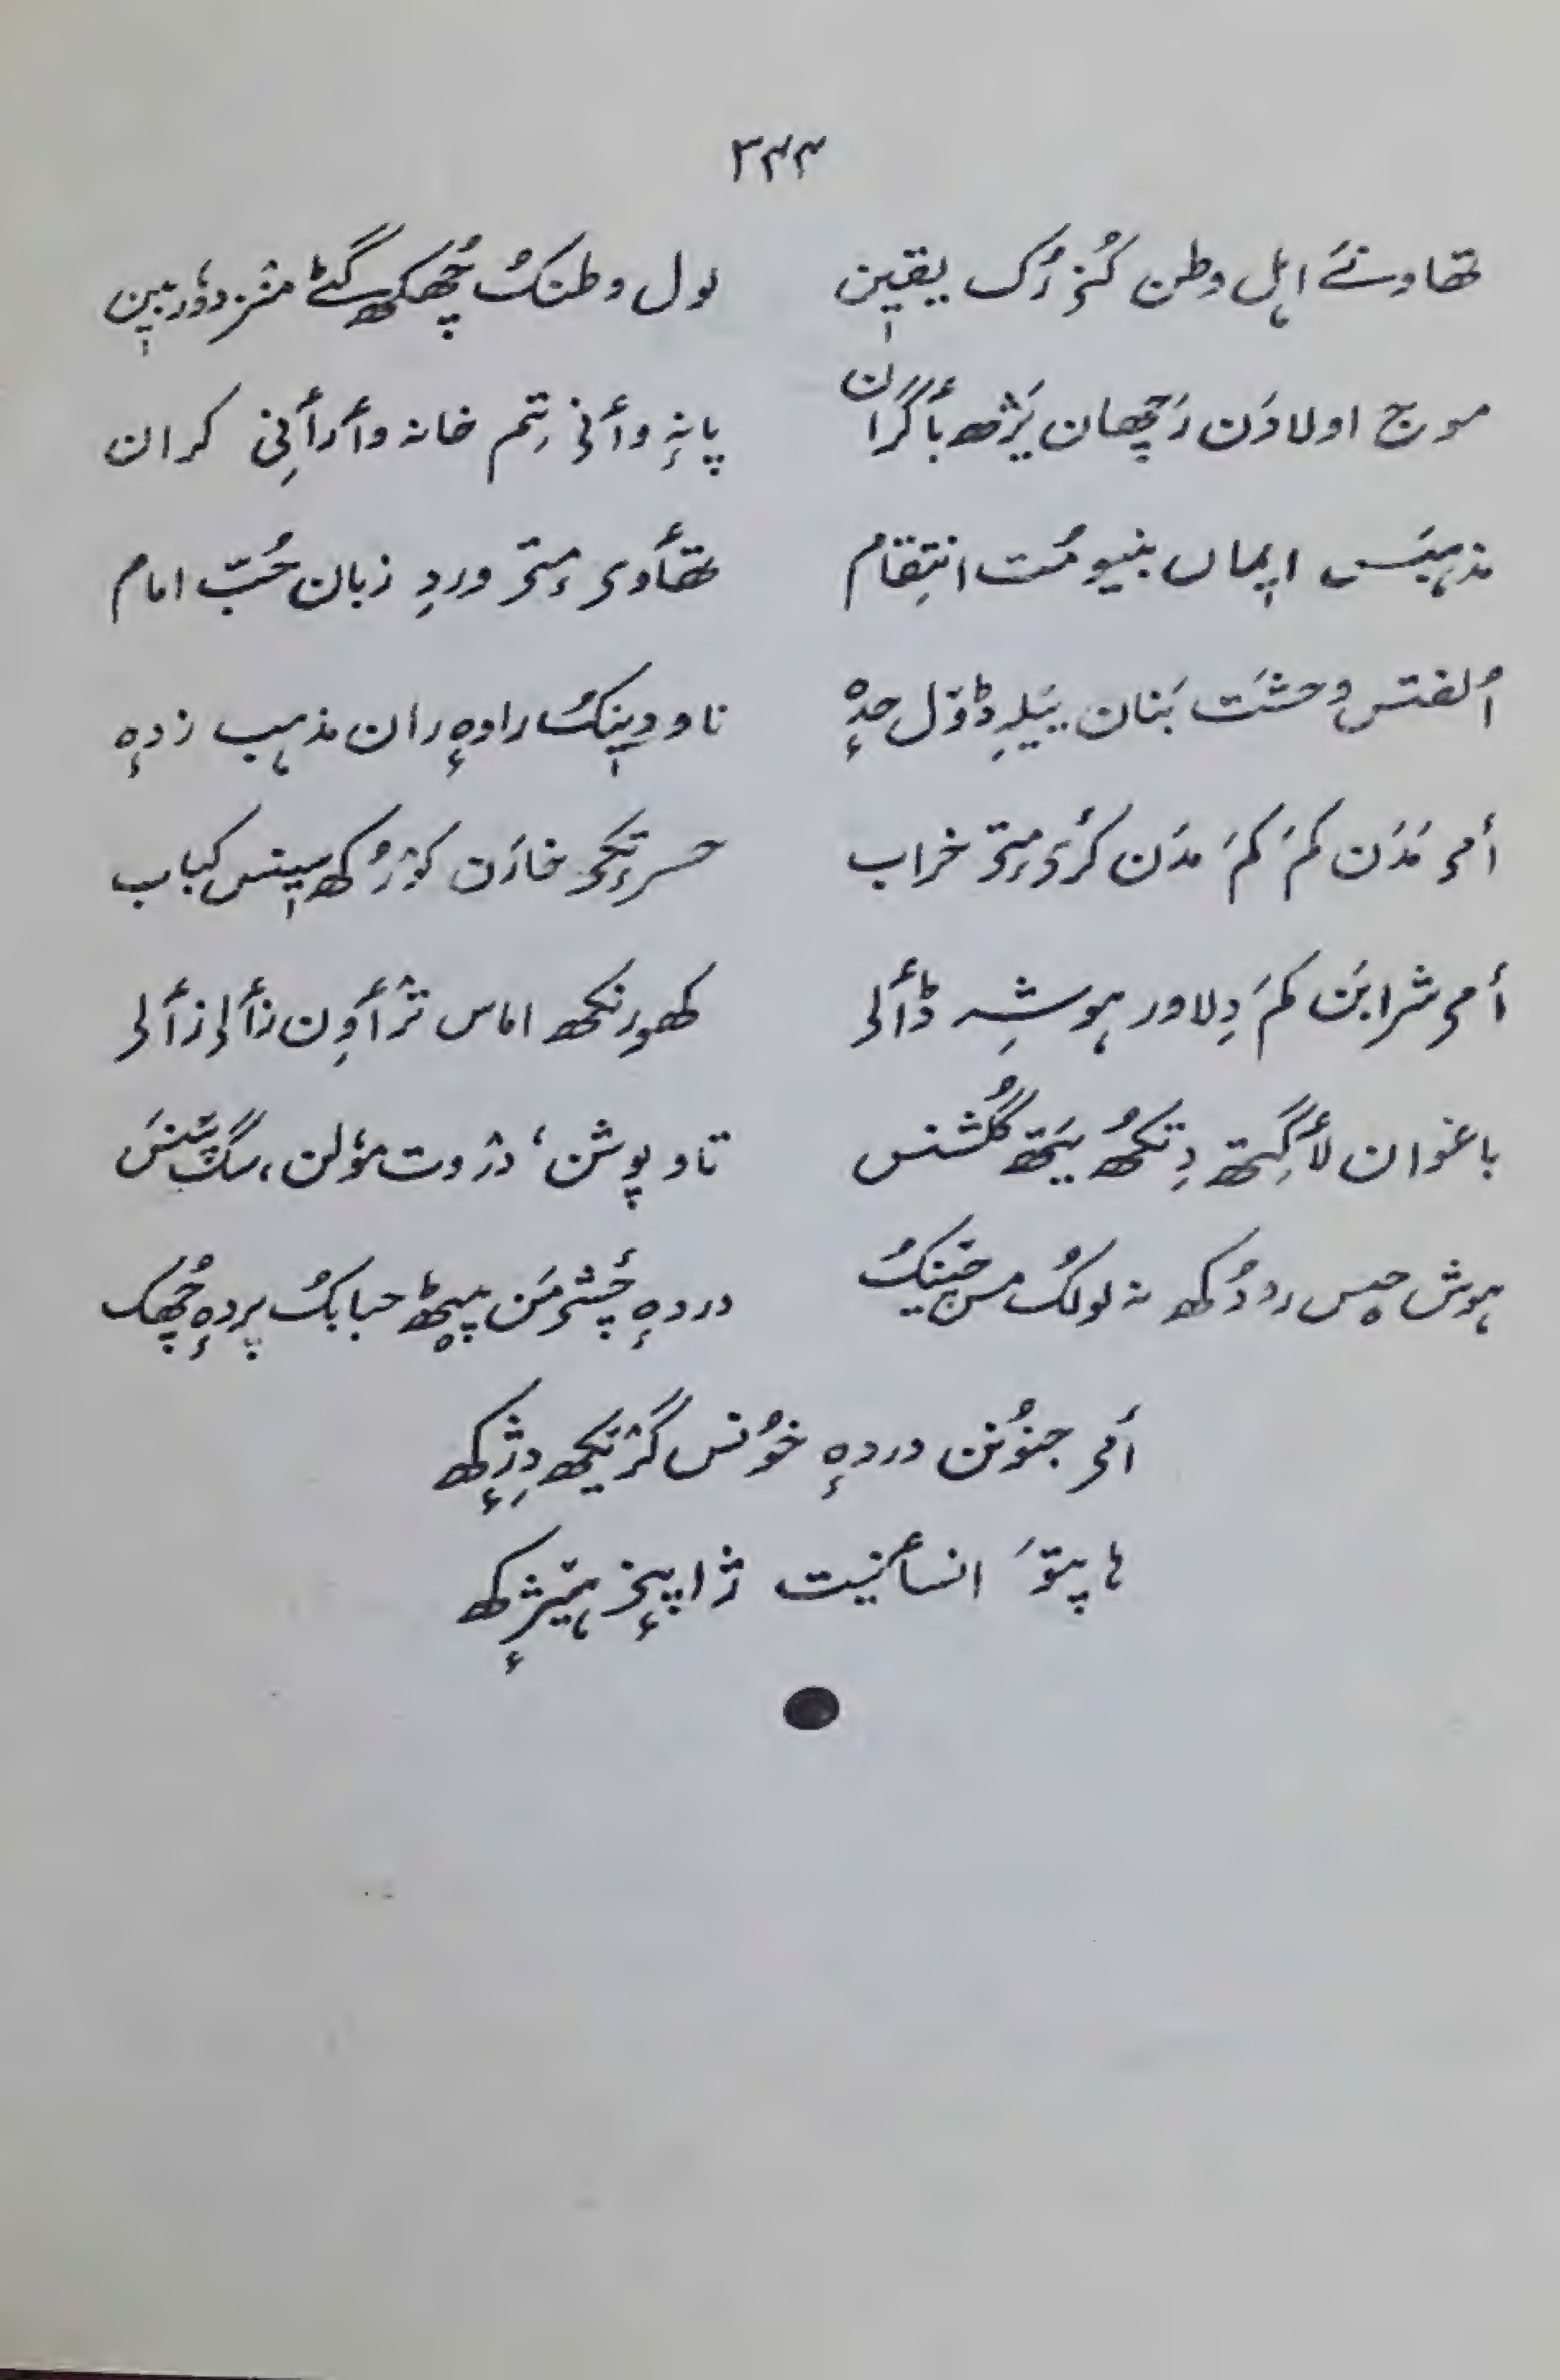 ۳۴۴
تھاونےَ اہل وطن کُنزرُک یقیٖن لول وطنکُ چُھکھ گٹے منز دوٗربیٖن
موج اولادَن رَچھان یَژھ باگران پانہٕ وأنۍ یِتم خانہ وأرأنِی کران
مذہبَس ایٖماں بنیومُت انتِقام تھأوۍ مٕتۍ وردِ زبان حُبِّ امام
اُلفتس وحشَت بَنان ییٚلہِ ڈوٚل حدہٕ ناو دیٖنکُ راوہٕ ران مذہب زدہٕ
أمۍ مَدَن کمَ کمَ مدَن کرۍ مٕتۍ خراب حسرتکۍ خارَن کوٚرُکھ سیٖنس کباب
أمۍ شرابَن کمَ دِلاور ہوشہِ ڈألۍ کھورنکھ اماس ترٛأوِن زألۍ زألۍ
باغوان لأگِتھ دِتکھُ یَتھ گُلشنس تاو پوشن، درٛوت موٗلن، سگ پَنَس
ہوش حِس رودُکھ نہ لولکُ مس خینکُ دردہٕ چٔشمَن پیٚٹھ حبابکُ پردہٕ چُھکَ
أمۍ جنوٗنن دردہٕ خوٗنس گرٛنکھ دِژٕکھ
ہا پتوَ انسأنیت ژاپیٖنۍ ہیٚژٕکھ